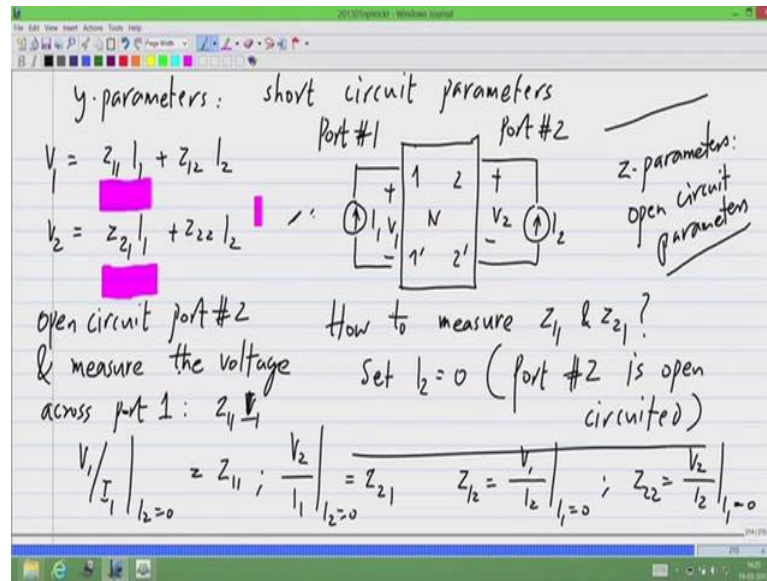 201301nptel.t - Windows Journal
File Edit View Insert Actions Tools Help
Page Width
y-parameters: short circuit parameters
Port #1 Port #2
V1 = Z11 I1 + Z12 I2
V2 = Z21 I1 + Z22 I2
1 2
+ +
I1 V1 N V2 I2
- -
1' 2'
z-parameters:
open circuit
parameters
open circuit port #2
& measure the voltage
across port 1: Z11 I1
How to measure Z11 & Z21?
Set I2 = 0 (port #2 is open
circuited)
V1/I1 | I2=0 = Z11 ; V2/I1 | I2=0 = Z21 Z12 = V1/I2 | I1=0 ; Z22 = V2/I2 | I1=0